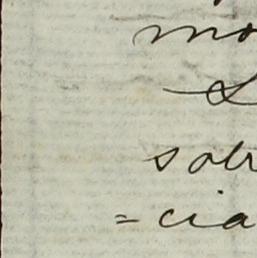 mo
S
sobr
=cia